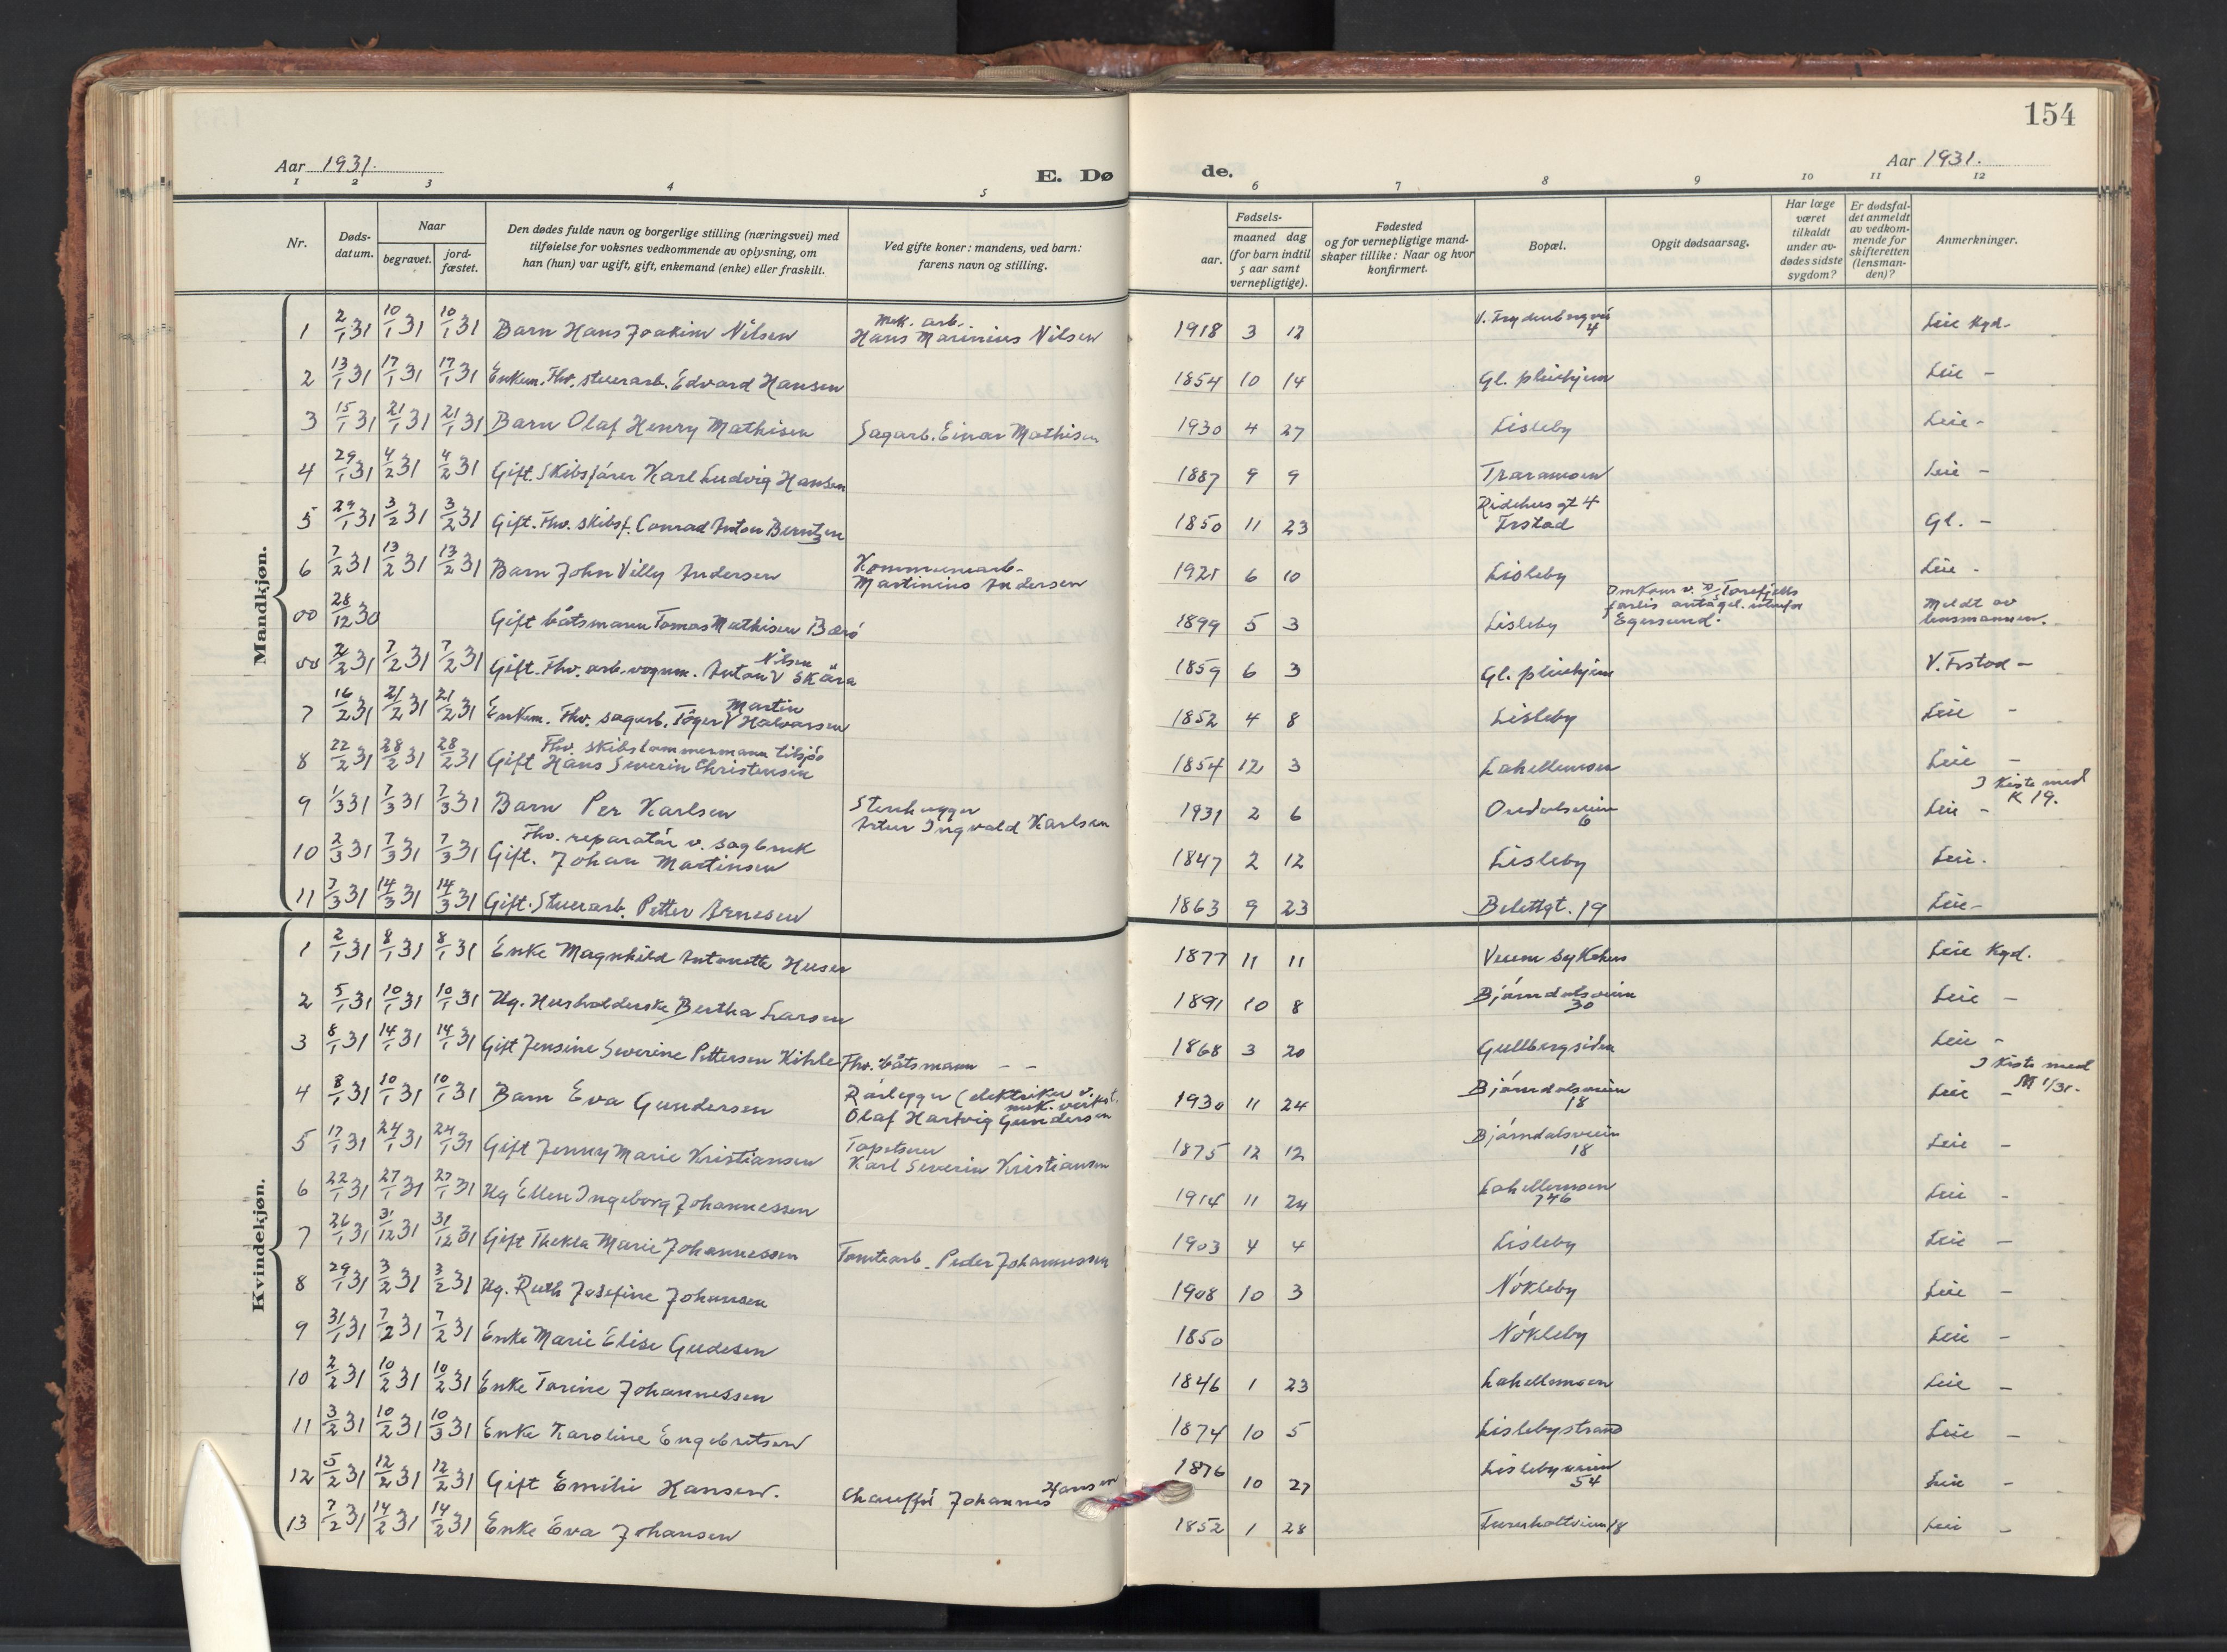 154
Aar 1931.
E. Dø
de.
Aar 1931.
1 2 3 4 5 6 7 8 9 10 11 12
Nr.
Døds-
datum.
Naar
begravet.
jord-
fæstet.
Den dødes fulde navn og borgerlige stilling (næringsvei) med
tilføielse for voksnes vedkommende av oplysning, om
han (hun) var ugift, gift, enkemand (enke) eller fraskilt.
Ved gifte koner: mandens, ved barn:
farens navn og stilling.
Fødsels-
aar.
maaned dag
(for barn indtil
5 aar samt
vernepligtige).
Fødested
og for vernepligtige mand-
skaper tillike: Naar og hvor
konfirmert.
Bopæl.
Opgit dødsaarsag.
Har læge
været
tilkaldt
under av-
dødes sidste
sygdom?
Er dødsfal-
det anmeldt
av vedkom-
mende for
skifteretten
(lensman-
den)?
Anmerkninger.
Mandkjøn.
1 2/1 31 10/1 31 10/1 31 Barn Hans Joakim Nilsen Mek. arb. Hans Marinius Nilsen 1918 3 12 4 Leie Kgd-
2 13/1 31 17/1 31 17/1 31 Enkem. Fhv. stuerarb. Edvard Hansen 1854 10 14 Gl. pleiehjem Leie -
3 15/1 31 21/1 31 21/1 31 Barn Olaf Henry Mathisen Sagarb. Einar Mathisen 1930 4 27 Lisleby Leie -
4 29/1 31 4/2 31 4/2 31 Gift. Skibsfører Karl Ludvig Hansen 1887 9 9 Traramoen Leie -
5 29/1 31 3/2 31 3/2 31 Gift. Fhv. skibsf. Conrad Anton Berntzen 1850 11 23 Ridehusgt 4 Frstad Gl. -
6 7/2 31 13/2 31 13/2 31 Barn John Villy Andersen Kommunearb- Martinius Andersen 1921 6 10 Lisleby Leie -
00 28/12 30 Gift båtsmann Tomas Mathisen Barø 1899 5 3 Lisleby Omkom v. D/S Torefjells forlis antagel. utenfor Egersund. Meldt av lensmannen.
00 2/2 31 7/2 31 7/2 31 Gift. Fhv. arb. vognm. Anton Nilsen Skåra 1859 6 3 Gl. pleiehjem V. Frstad -
7 16/2 31 21/2 31 21/2 31 Enkem. Fhv. sagarb. Tøger Martin Halvorsen 1852 4 8 Lisleby Leie -
8 22/2 31 28/2 31 28/2 31 Gift Fhv. skibstømmermann tilsjøs Hans Severin Christensen 1854 12 3 Lahellemoen Leie -
9 1/3 31 7/3 31 7/3 31 Barn Per Karlsen Stenhugger Artur Ingvald Karlsen 1931 2 6 Ordalsveien 6 Leie - I kiste med K 19.
10 2/3 31 7/3 31 7/3 31 Gift. Fhv. reparatør v. sagbruk Johan Martinsen 1847 2 12 Lisleby Leie.
11 7/3 31 14/3 31 14/3 31 Gift. Stuerarb. Petter Arnesen 1863 9 23 Belettgt. 19 Leie -
Kvindekjøn.
1 2/1 31 8/1 31 8/1 31 Enke Magnhild Antonette Huser 1877 11 11 Veum sykehus Leie Kgd.
2 5/1 31 10/1 31 10/1 31 Ug. Husholderske Bertha Larsen 1891 10 8 Bjørndalsveien 30 Leie -
3 8/1 31 14/1 31 14/1 31 Gift Jensine Severine Pettersen Kihle Fhv. båtsmann - - 1868 3 20 Gullbergsiden Leie -
4 8/1 31 10/1 31 10/1 31 Barn Eva Gundersen Rørlegger (elektriker v. mek. verkst. Olaf Hartvig Gundersen 1930 11 24 Bjørndalsveien 18 Leie - I kiste med M 1/31.
5 17/1 31 24/1 31 24/1 31 Gift Jenny Marie Kristiansen Tapetserer Karl Severin Kristiansen 1875 12 12 Bjørndalsveien 18 Leie -
6 22/1 31 27/1 31 27/1 31 Ug Ellen Ingeborg Johannessen 1914 11 24 Lahellemoen 746 Leie -
7 26/1 31 31/12 31 31/12 31 Gift Thekla Marie Johannessen Tomtearb. Peder Johannessen 1903 4 4 Lisleby Leie -
8 29/1 31 3/2 31 3/2 31 Ug. Ruth Josefine Johansen 1908 10 3 Nøkleby Leie -
9 31/1 31 7/2 31 7/2 31 Enke Marie Elise Gudesen 1850 Nøkleby Leie -
10 2/2 31 10/2 31 10/2 31 Enke Torine Johannessen 1846 1 23 Lahellemoen Leie -
11 3/2 31 10/2 31 10/3 31 Enke Karoline Engebretsen 1874 10 5 Lislebystrand Leie -
12 5/2 31 12/2 31 12/2 31 Gift Emilie Hansen. Chauffør Johannes Hansen 1876 10 27 Lislebyveien 54 Leie -
13 7/2 31 14/2 31 14/2 31 Enke Eva Johansen 1852 1 28 18 Leie -